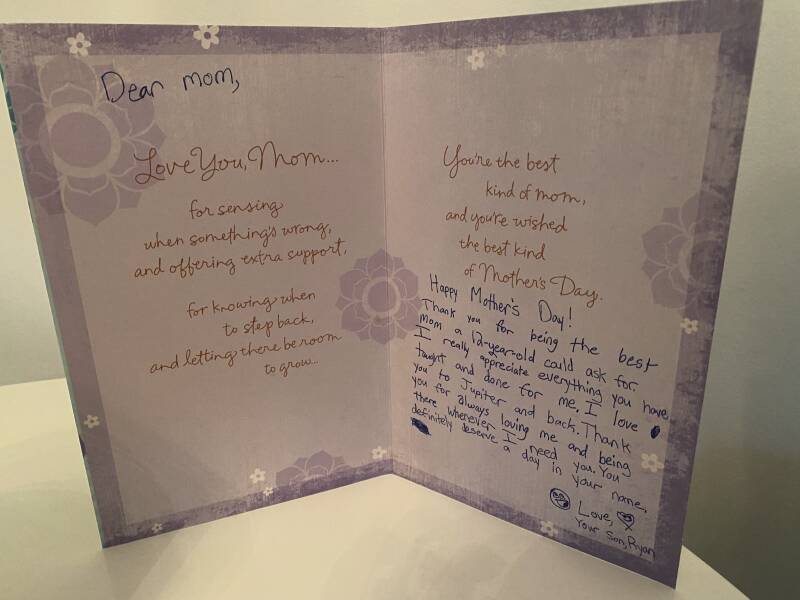 Dear mom,
Love You, Mom...
for sensing
when something's wrong,
and offering extra support,
for knowing when
to step back,
and letting there be room
to grow...
You're the best
kind of mom,
and you're wished
the best kind
of Mother's Day.
Happy Mother's Day!
Thank you for being the best
mom a 12-year-old could ask for.
I really appreciate everything you have
taught and done for me. I love
you to Jupiter and back. Thank
you for always loving me and being
there whenever I need you. You
definitely deserve a day in your name.
Love,
Your Son, Ryan